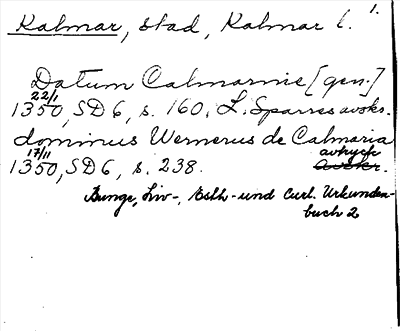 1.
Kalmar, stad, Kalmar l.
Datum Calmarnie [gen.]
22/1
1350, SD 6, s. 160, L. Sparres avskr.
dominus Wernerus de Calmaria
17/11 avtryck
1350, SD 6, s. 238. avskr.
Bunge, Liv-, Esth- und Curl. Urkunden-
buch 2